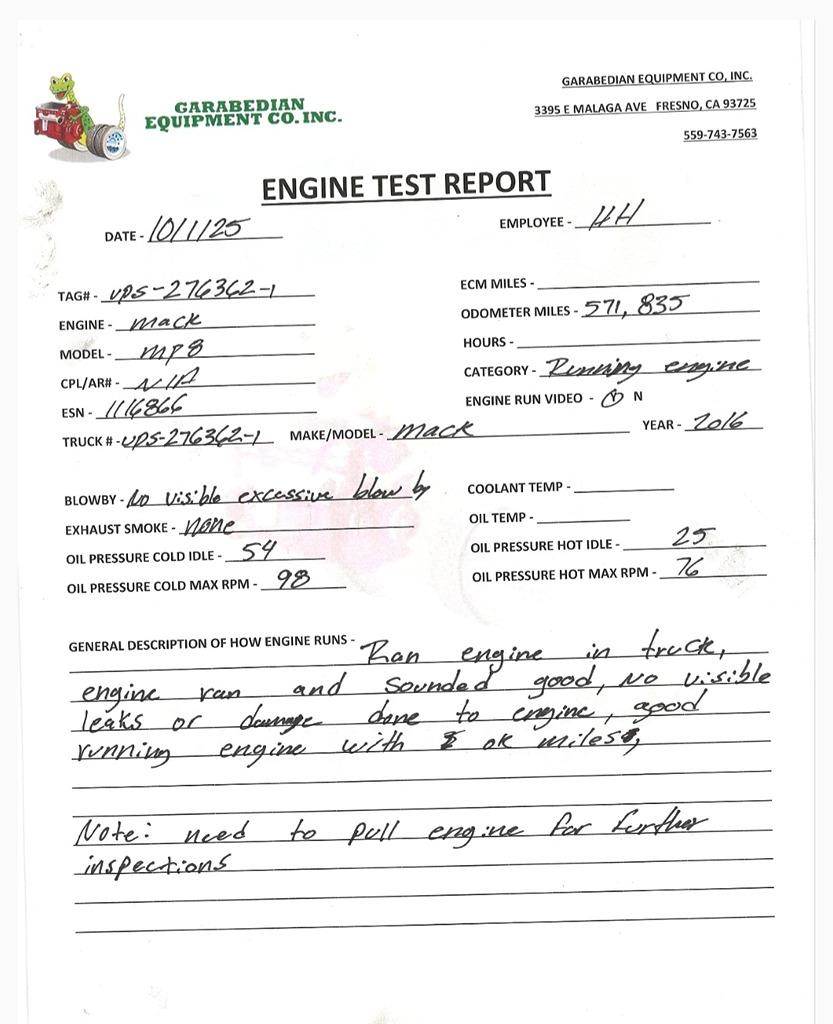 GARABEDIAN
EQUIPMENT CO. INC.
GARABEDIAN EQUIPMENT CO, INC.
3395 E MALAGA AVE FRESNO, CA 93725
559-743-7563
ENGINE TEST REPORT
DATE - 10/1/25
EMPLOYEE - HH
TAG# - UPS-276362-1
ENGINE - Mack
MODEL - MP8
CPL/AR# - N/A
ESN - 1116866
ECM MILES -
ODOMETER MILES - 571,835
HOURS -
CATEGORY - Running engine
ENGINE RUN VIDEO - Y N
TRUCK # - UPS-276362-1 MAKE/MODEL - Mack YEAR - 2016
BLOWBY - No visible excessive blow by
EXHAUST SMOKE - None
OIL PRESSURE COLD IDLE - 54
OIL PRESSURE COLD MAX RPM - 98
COOLANT TEMP -
OIL TEMP -
OIL PRESSURE HOT IDLE - 25
OIL PRESSURE HOT MAX RPM - 76
GENERAL DESCRIPTION OF HOW ENGINE RUNS - Ran engine in truck,
engine ran and sounded good, No visible
leaks or damage done to engine, good
running engine with ok miles,
Note: need to pull engine for further
inspections